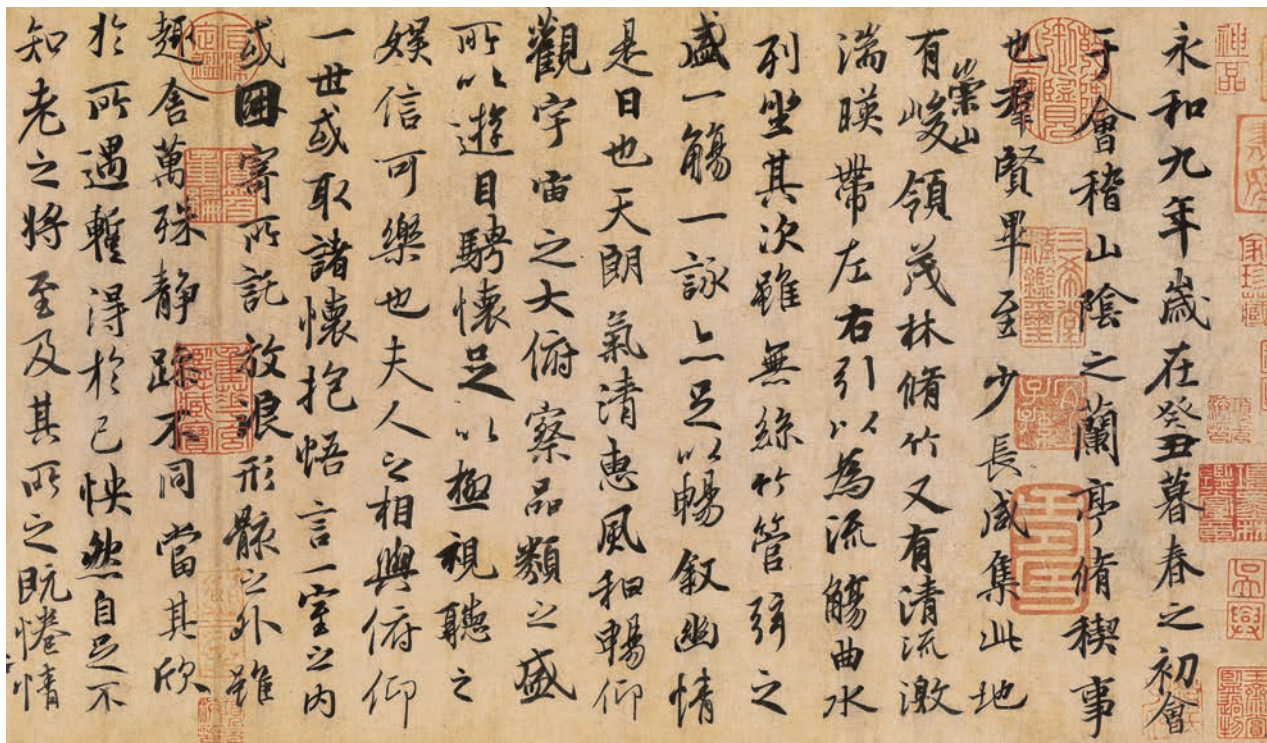 神品
家珍藏
永和九年歲在癸丑暮春之初會
于會稽山陰之蘭亭脩稧事
三希堂精鑑璽
宜子孫
也羣賢畢至少長咸集此地
有崇山峻領茂林脩竹又有清流激
湍暎帶左右引以為流觴曲水
列坐其次雖無絲竹管弦之
盛一觴一詠亦足以暢敘幽情
是日也天朗氣清惠風和暢仰
觀宇宙之大俯察品類之盛
所以遊目騁懷足以極視聽之
娛信可樂也夫人之相與俯仰
一世或取諸懷抱悟言一室之內
或因寄所託放浪形骸之外雖
趣舍萬殊靜躁不同當其欣
於所遇暫得於己怏然自足不
知老之將至及其所之既惓情